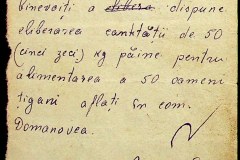 binevoiți a dispune
eliberarea cantității de 50
(cinci zeci) kg pâine pentru
alimentarea a 50 oameni
țigani aflați în com.
Domanovca.